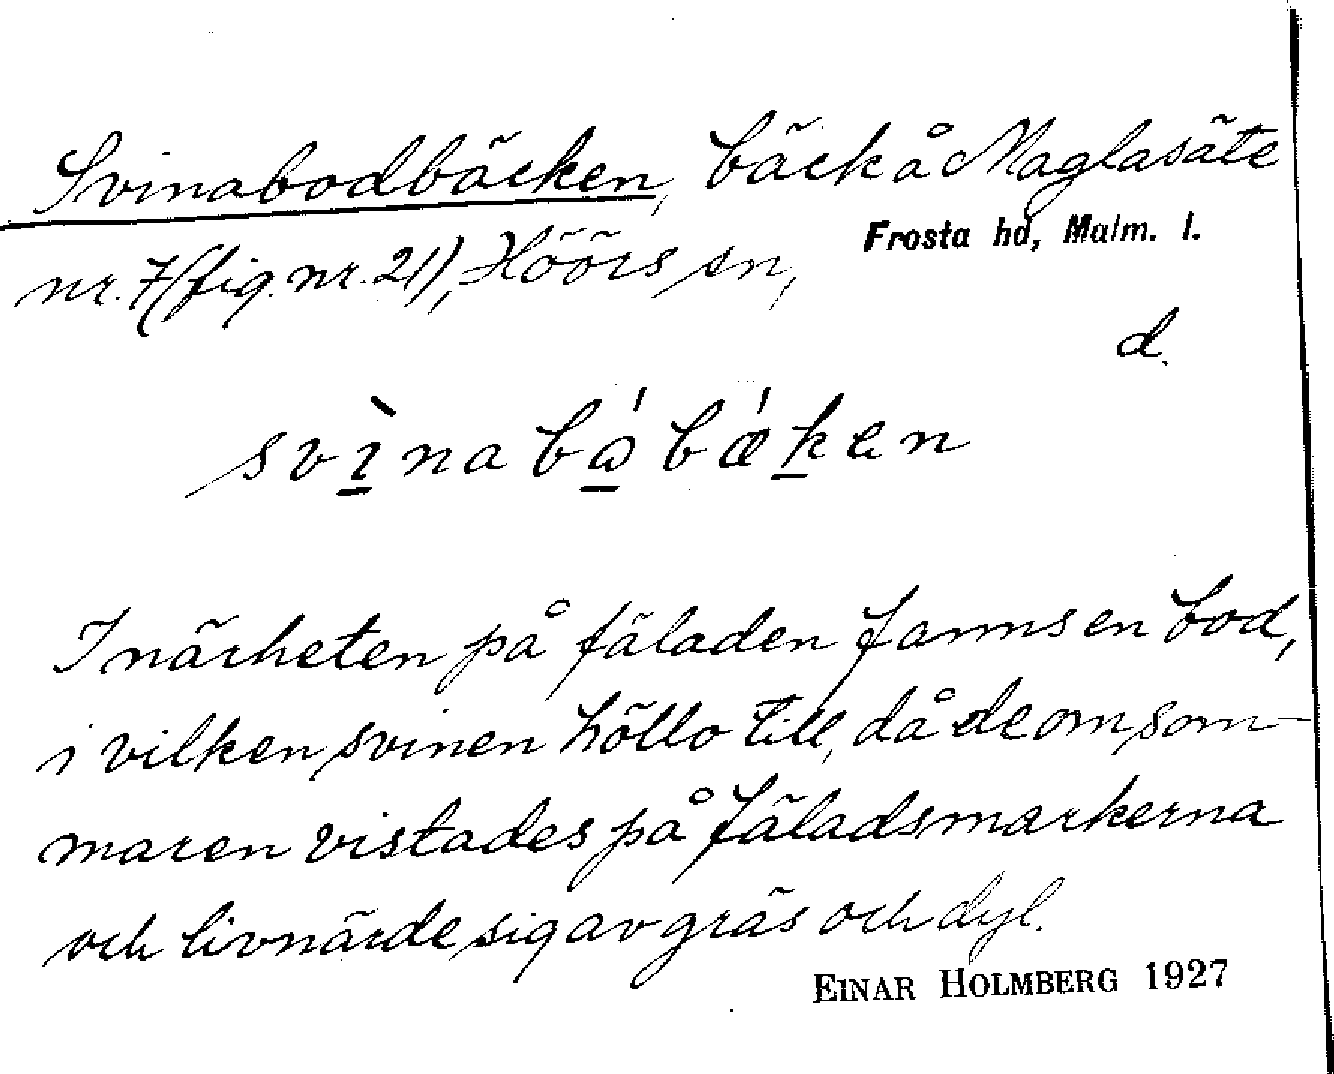 Svinabodbäcken, bäck å Maglasäte
nr. 7 (fig. nr. 21), Höörs sn,
Frosta hd, Malm. l.
d.
svìnabábǽken
I närheten på fäladen fanns en bod,
i vilken svinen höllo till, då de om som-
maren vistades på fäladsmarkerna
och livnärde sig av gräs och dyl.
EINAR HOLMBERG 1927